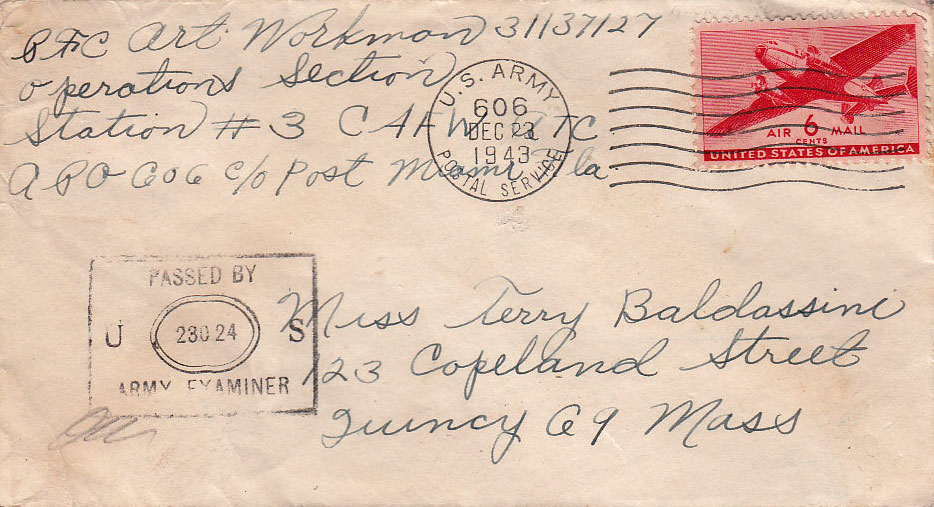 PFC Art Workman 31137127
Operations Section
Station #3 CAFW ATC
APO 606 c/o Post Miami Fla.
U.S. ARMY
606
DEC 23
1943
POSTAL SERVICE
AIR 6 MAIL
CENTS
UNITED STATES OF AMERICA
PASSED BY
U 23024 S
ARMY EXAMINER
Miss Terry Baldassini
123 Copeland Street
Quincy 69 Mass